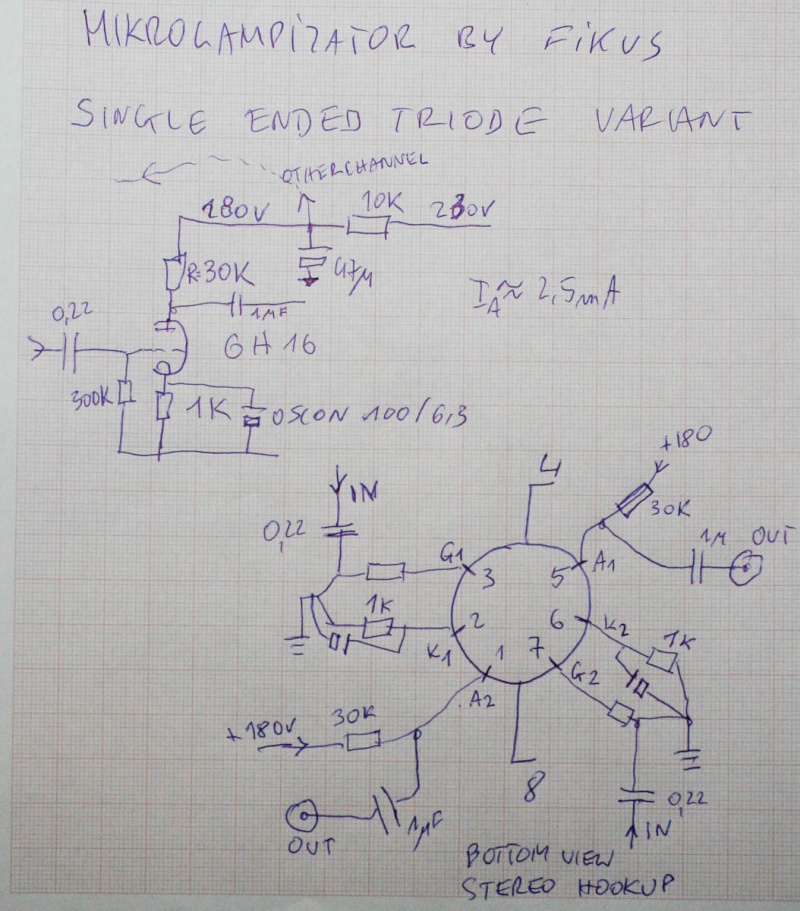 MIKROLAMPIZATOR BY FIKUS
SINGLE ENDED TRIODE VARIANT
OTHER CHANNEL
180V
10K
230V
R=30K
47µ
1µF
IA ≈ 2,5mA
0,22
6H16
300K
1K
OSCON 100/6,3
+180
4
IN
30K
0,22
1µ
OUT
G1
3
5
A1
1K
2
6
K2
1K
K1
1
7
G2
A2
+180V
30K
8
0,22
1µF
OUT
IN
BOTTOM VIEW
STEREO HOOKUP